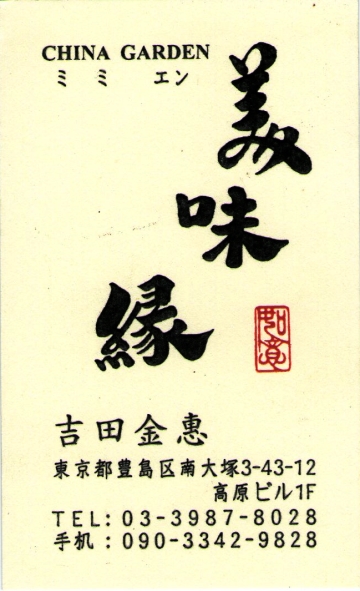 CHINA GARDEN
ミミ エン
美味縁
如意
吉田金惠
東京都豊島区南大塚3-43-12
高原ビル1F
TEL: 03-3987-8028
手机: 090-3342-9828